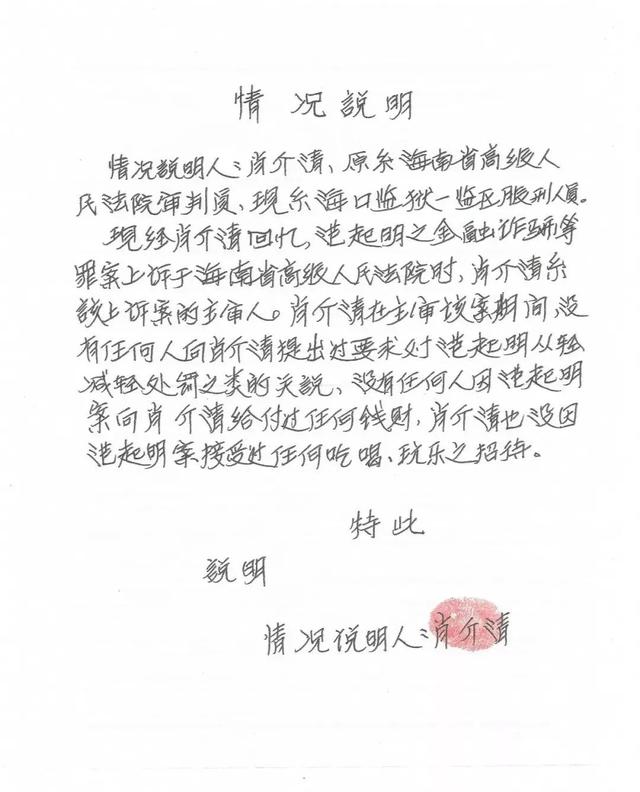 情况説明
情况説明人:肖介清、原系海南省高级人
民法院审判员、现系海口监狱一监区服刑人员。
现经肖介清回忆,范起明之金融诈骗等
罪案上诉于海南省高级人民法院时,肖介清系
该上诉案的主审人。肖介清在主审该案期间,没
有任何人向肖介清提出过要求对范起明从轻
减轻处罚之类的关説、没有任何人因范起明
案向肖介清给付过任何钱财,肖介清也没因
范起明案接受过任何吃喝、玩乐之招待。
特此
説明
情况说明人:肖介清